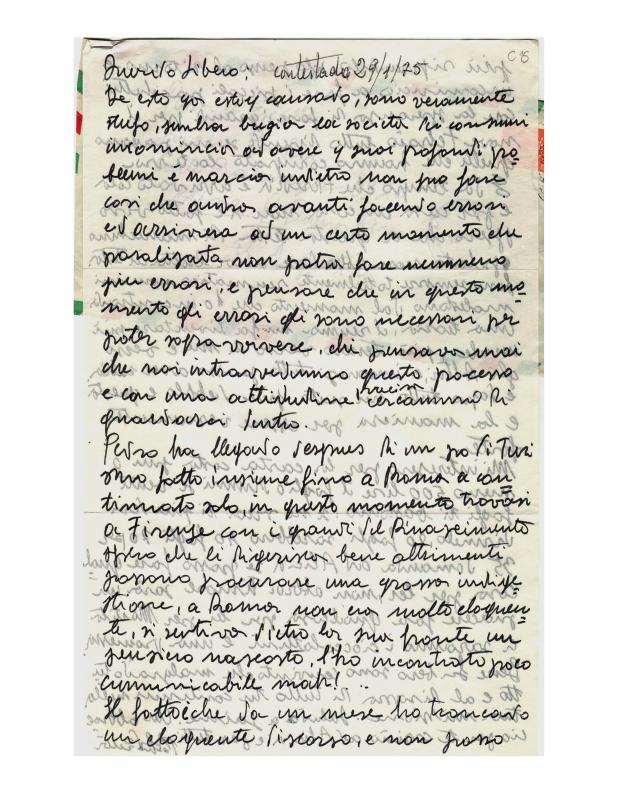 C15
Querido Libero: contestado 29/1/75
De esto ya estoy cansado, sono veramente
stufo, sembra bugia la società di consumi
incomincia ad avere y suoi profondi pro=
blemi é marcia indietro non puo fare
cosi che andrà avanti facendo errori
ed arriverà ad un certo momento che
paralizzata non potrà fare nemmeno
piu errori, e pensare che in questo mo=
mento gli errori gli sono necessari per
poter sopravvivere, chi pensava mai
che noi intravvedimmo questo processo
e con una attitudine precisa cercammo di
guardarci dentro.
Pedro ha llegado despues di un po di
fatto insieme fino a Roma a con=
tinuato solo, in questo momento trovasi
a Firenze con i grandi del Rinascimento
spero che li digerisca bene altrimenti
possono procurare una grossa indige=
stione, a Roma non era molto eloquen=
te, si sentiva dietro la sua fronte un
pensiero nascosto, l'ho incontrato poco
comunicabile mah! ..
Il fatto é che da un mese ha troncato
un eloquente discorso, e non posso